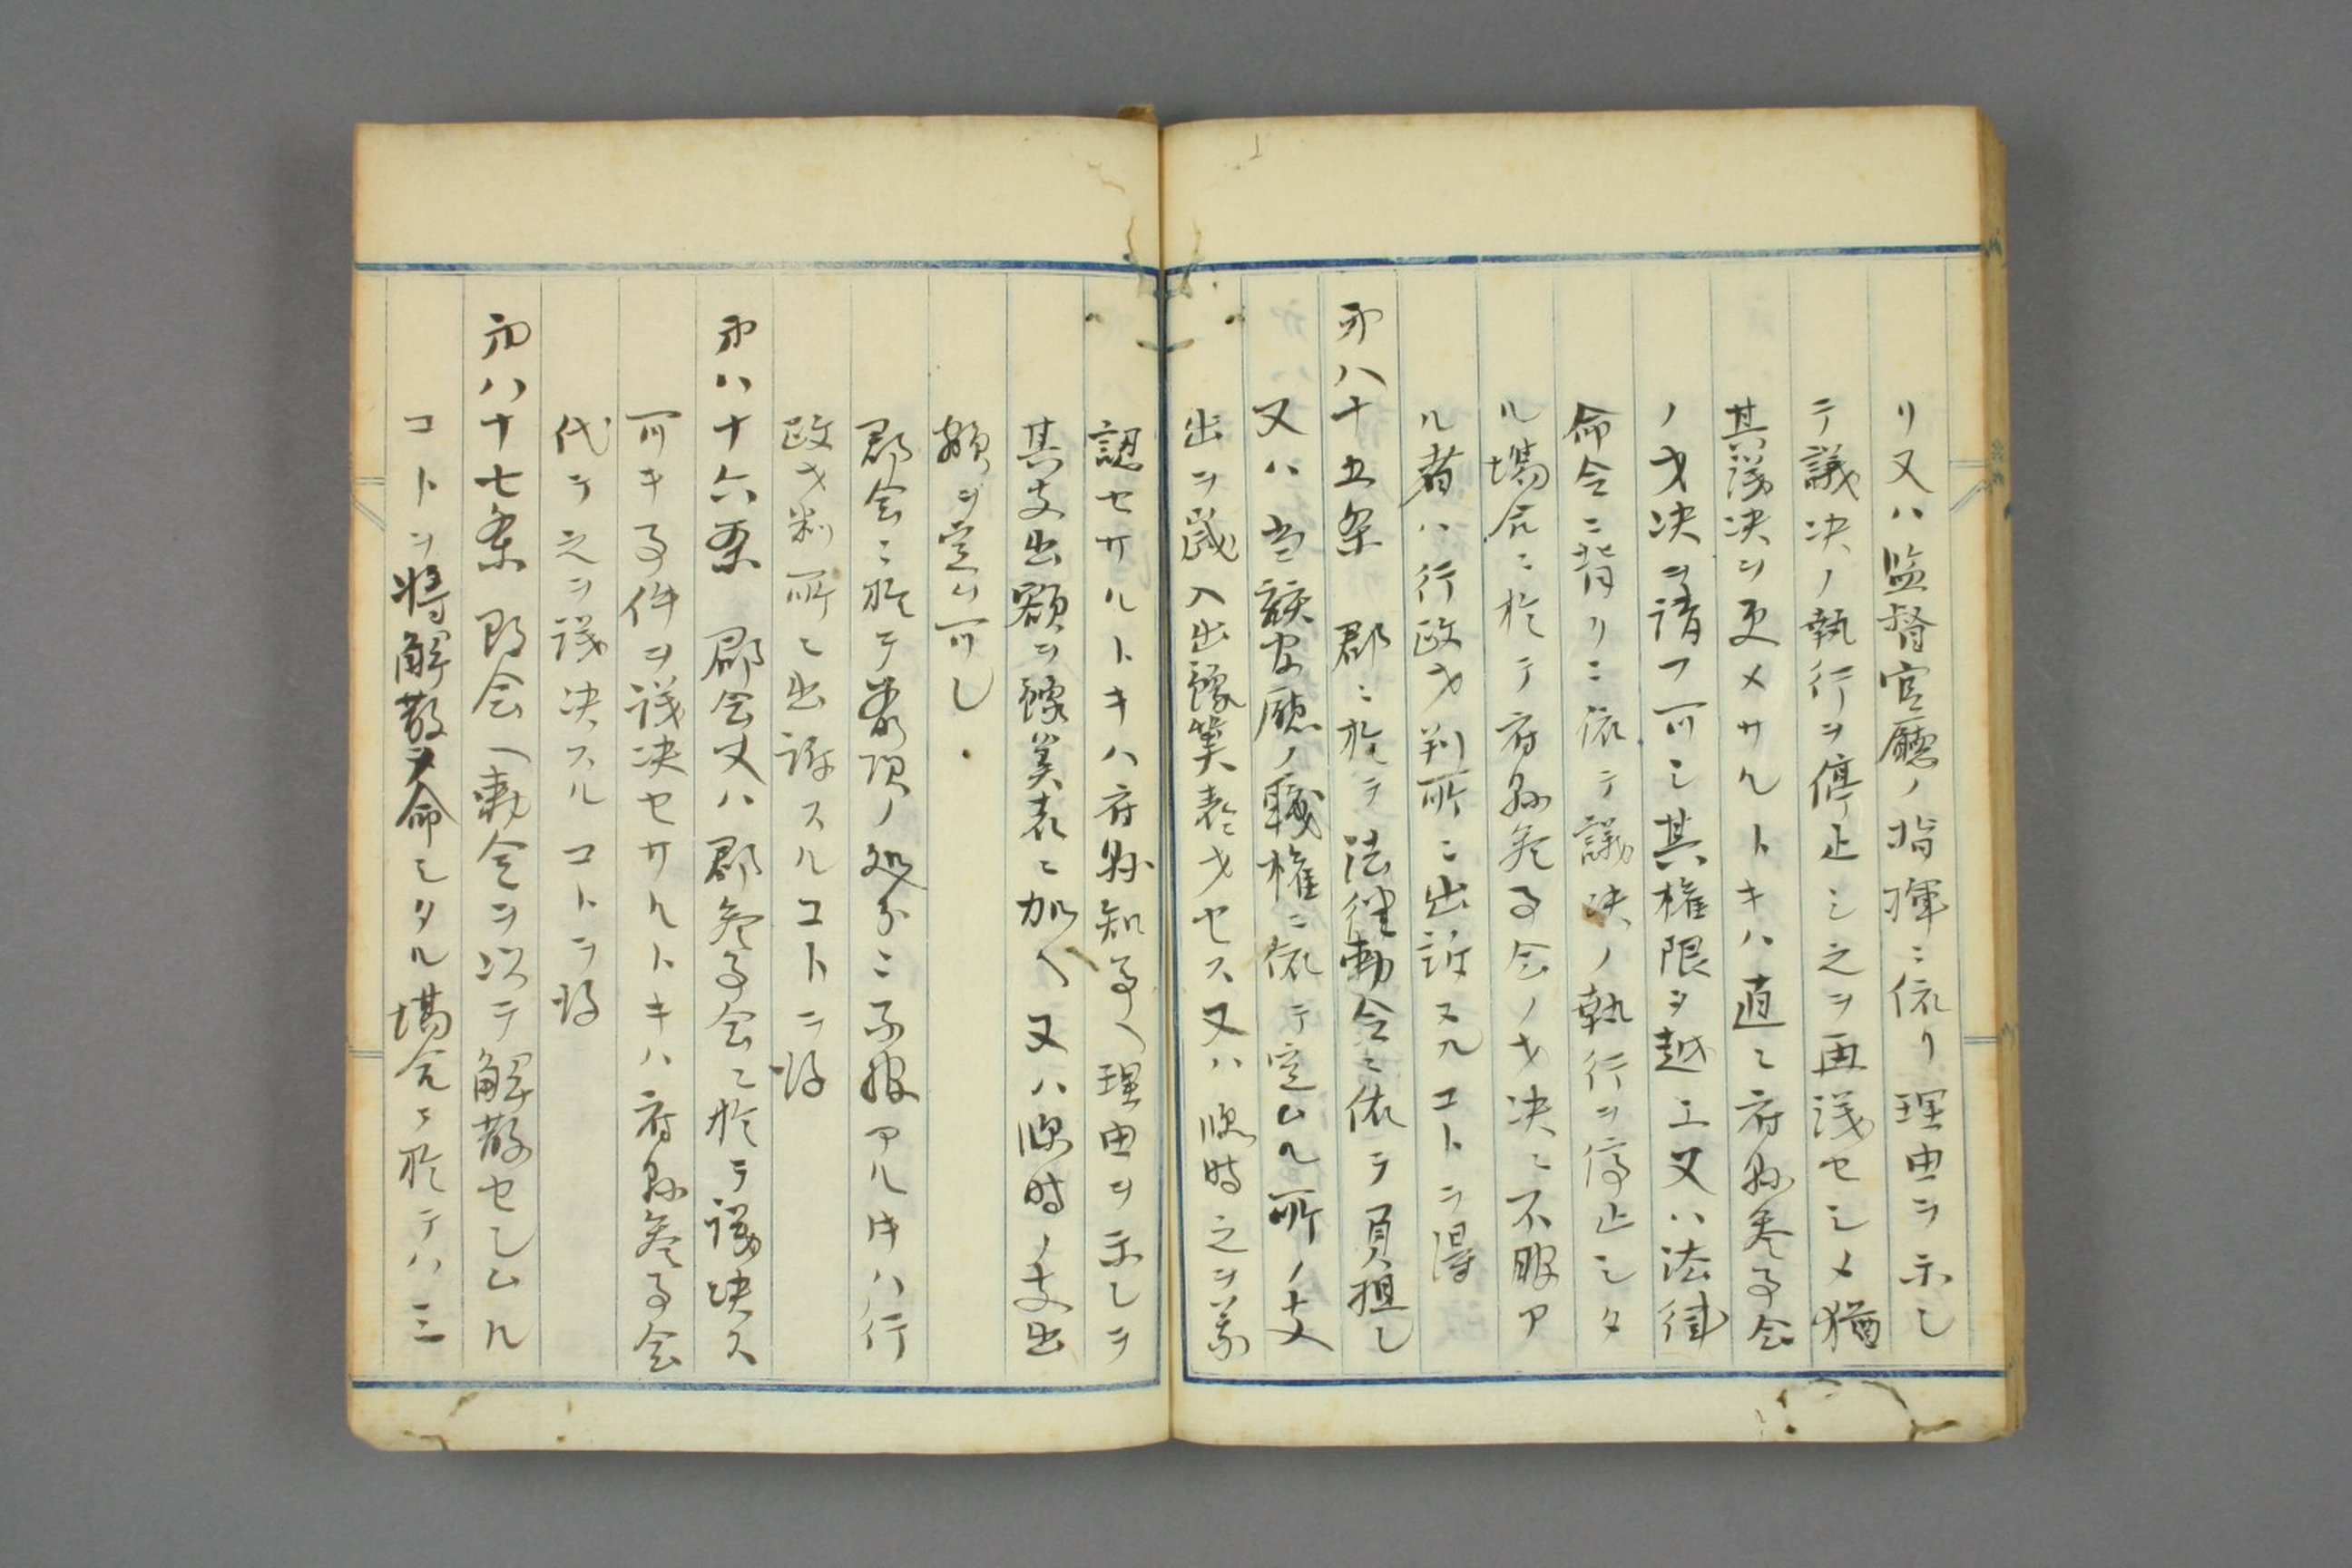 リ又ハ監督官廳ノ指揮ニ依リ理由ヲ示シ
テ議决ノ執行ヲ停止シ之ヲ再議セシメ猶
其議决ヲ更メサルトキハ直ニ府縣参事会
ノ才决ヲ請フ可シ其権限ヲ越エ又ハ法律
命令ニ背クニ依テ議决ノ執行ヲ停止シタ
ル塲合ニ於テ府縣参事会ノ才决ニ不服ア
ル者ハ行政才判所ニ出訴スルコトヲ得
第八十五条 郡ニ於テ法律勅令ニ依テ負担シ
又ハ当該官廳ノ職権ニ依テ定ムル所ノ支
出ヲ歳入出豫算表ニ才セス又ハ臨時之ヲ承
認セサルトキハ府縣知事ハ理由ヲ示シテ
其支出額ヲ豫算表ニ加ヘ又ハ臨時ノ支出
額ヲ定ム可シ
郡会ニ於テ前項ノ処分ニ不服アル时ハ行
政才判所ニ出訴スルコトヲ得
第八十六条 郡会又ハ郡参事会ニ於テ議决ス
可キ事件ヲ議决セサルトキハ府縣参事会
代テ之ヲ議决スルコトヲ得
第八十七条 郡会ハ勅令ヲ以テ解散セシムル
コトヲ得解散ヲ命シタル塲合ニ於テハ三